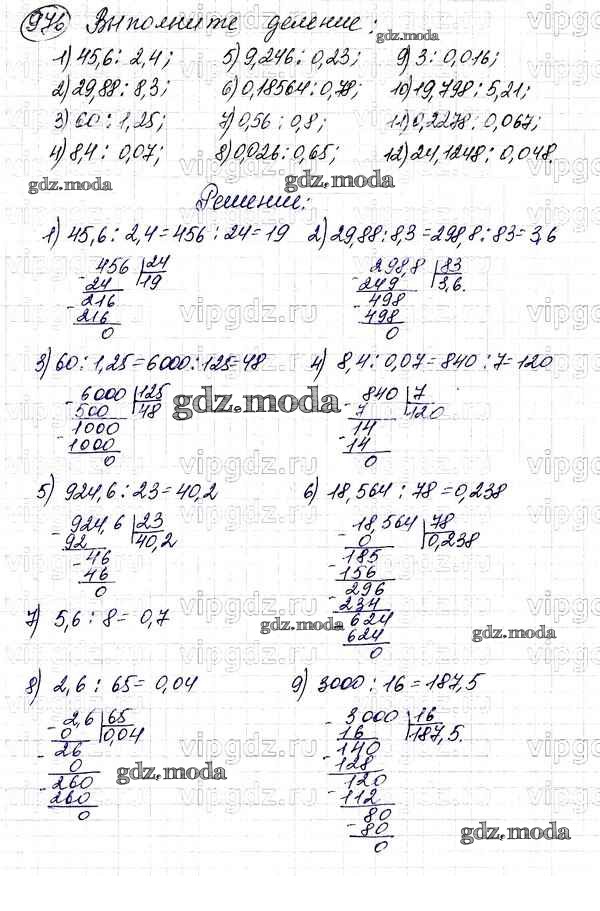 976 Выполните деление:
1) 45,6 : 2,4; 5) 9,246 : 0,23; 9) 3 : 0,016;
2) 29,88 : 8,3; 6) 0,18564 : 0,78; 10) 19,798 : 5,21;
3) 60 : 1,25; 7) 0,56 : 0,8; 11) 0,2278 : 0,067;
4) 8,4 : 0,07; 8) 0,026 : 0,65; 12) 24,1248 : 0,048.
gdz.moda gdz.moda
Решение:
1) 45,6 : 2,4 = 456 : 24 = 19 2) 29,88 : 8,3 = 298,8 : 83 = 3,6
- 456 24 - 298,8 83
24 19 249 3,6.
- 216 - 498
216 498
0 0
3) 60 : 1,25 = 6000 : 125 = 48 4) 8,4 : 0,07 = 840 : 7 = 120
- 6000 125 - 840 7
500 48 gdz.moda 7 120
- 1000 - 14
1000 14
0 0
5) 924,6 : 23 = 40,2 6) 18,564 : 78 = 0,238
- 924,6 23 - 18,564 78
92 40,2 0 0,238
- 46 - 185
46 156
0 - 296
234
7) 5,6 : 8 = 0,7 - 624
gdz.moda 624 gdz.moda
0
8) 2,6 : 65 = 0,04 9) 3000 : 16 = 187,5
- 2,6 65 - 3000 16
0 0,04 16 187,5.
- 26 - 140
0 128
- 260 gdz.moda - 120
260 112
0 - 80
80 gdz.moda
0
vipgdz.ru